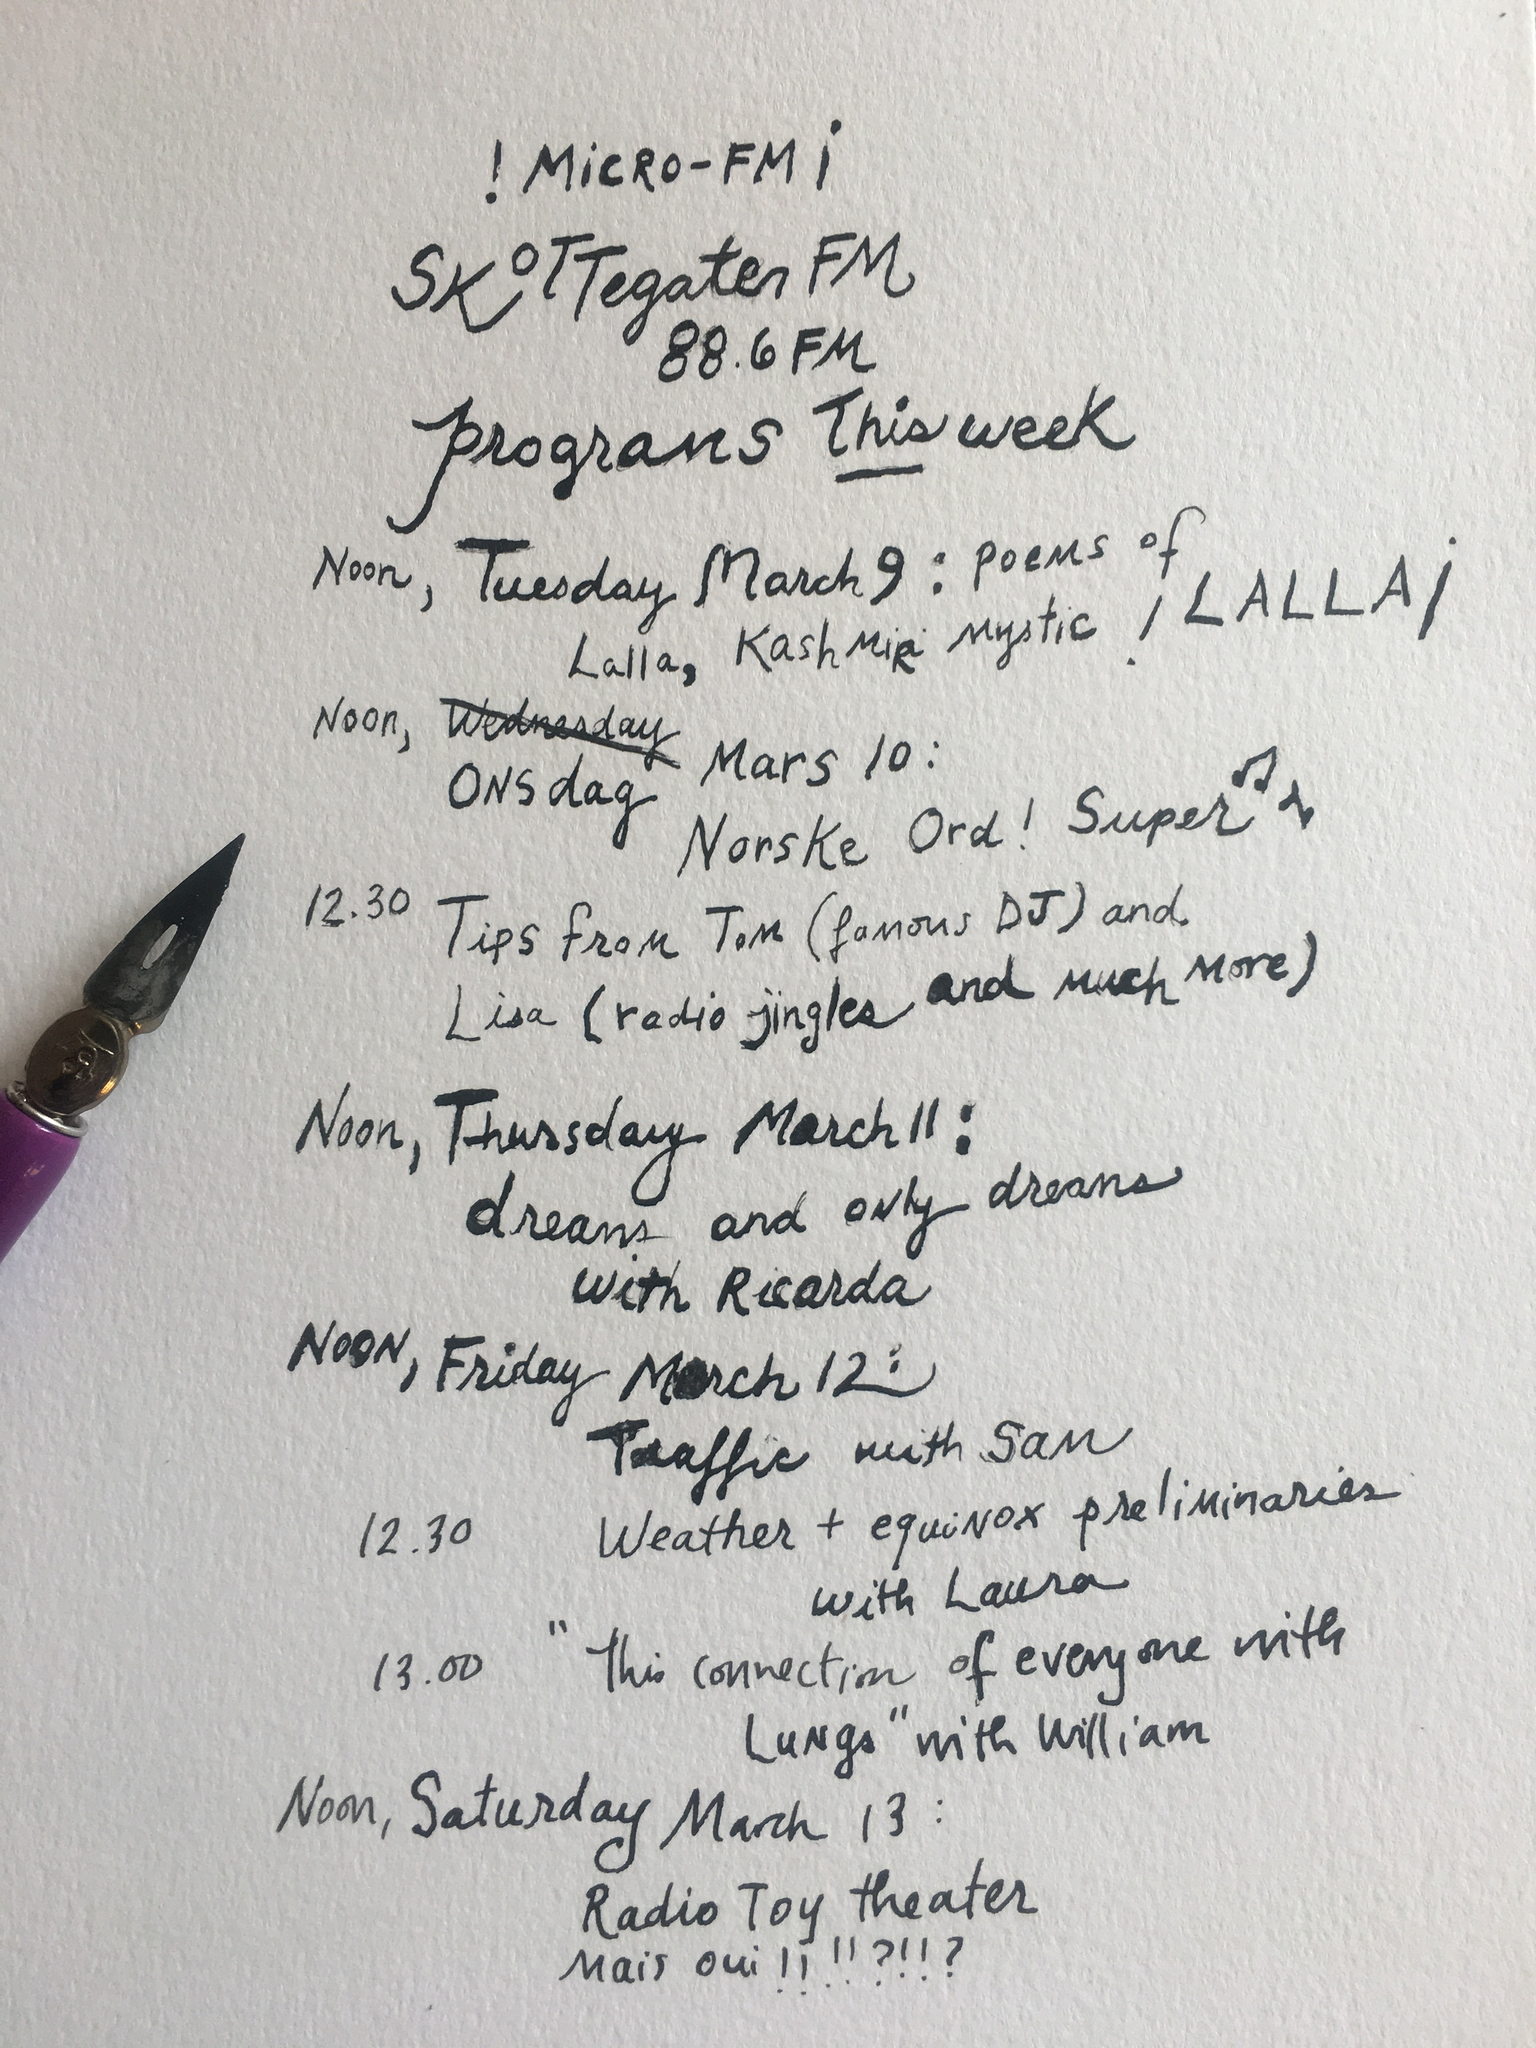 ! MiCRO-FM ¡
SKOTTegaten FM
88.6 FM
programs This week
Noon, Tuesday March 9 : poems of
Lalla, Kashmiri mystic ! LALLA ¡
Noon, Wednesday
ONSdag Mars 10:
Norske Ord! Super ♫♪
12.30 Tips from Tom (famous DJ) and
Lisa (radio jingles and much more)
Noon, Thursday March 11 :
dreams and only dreams
with Ricarda
NOON, Friday March 12 :
Traffic with Sam
12.30 Weather + equinox preliminaries
with Laura
13.00 "This connection of everyone with
Lungs" with William
Noon, Saturday March 13 :
Radio Toy theater
Mais oui !! !!?!!?